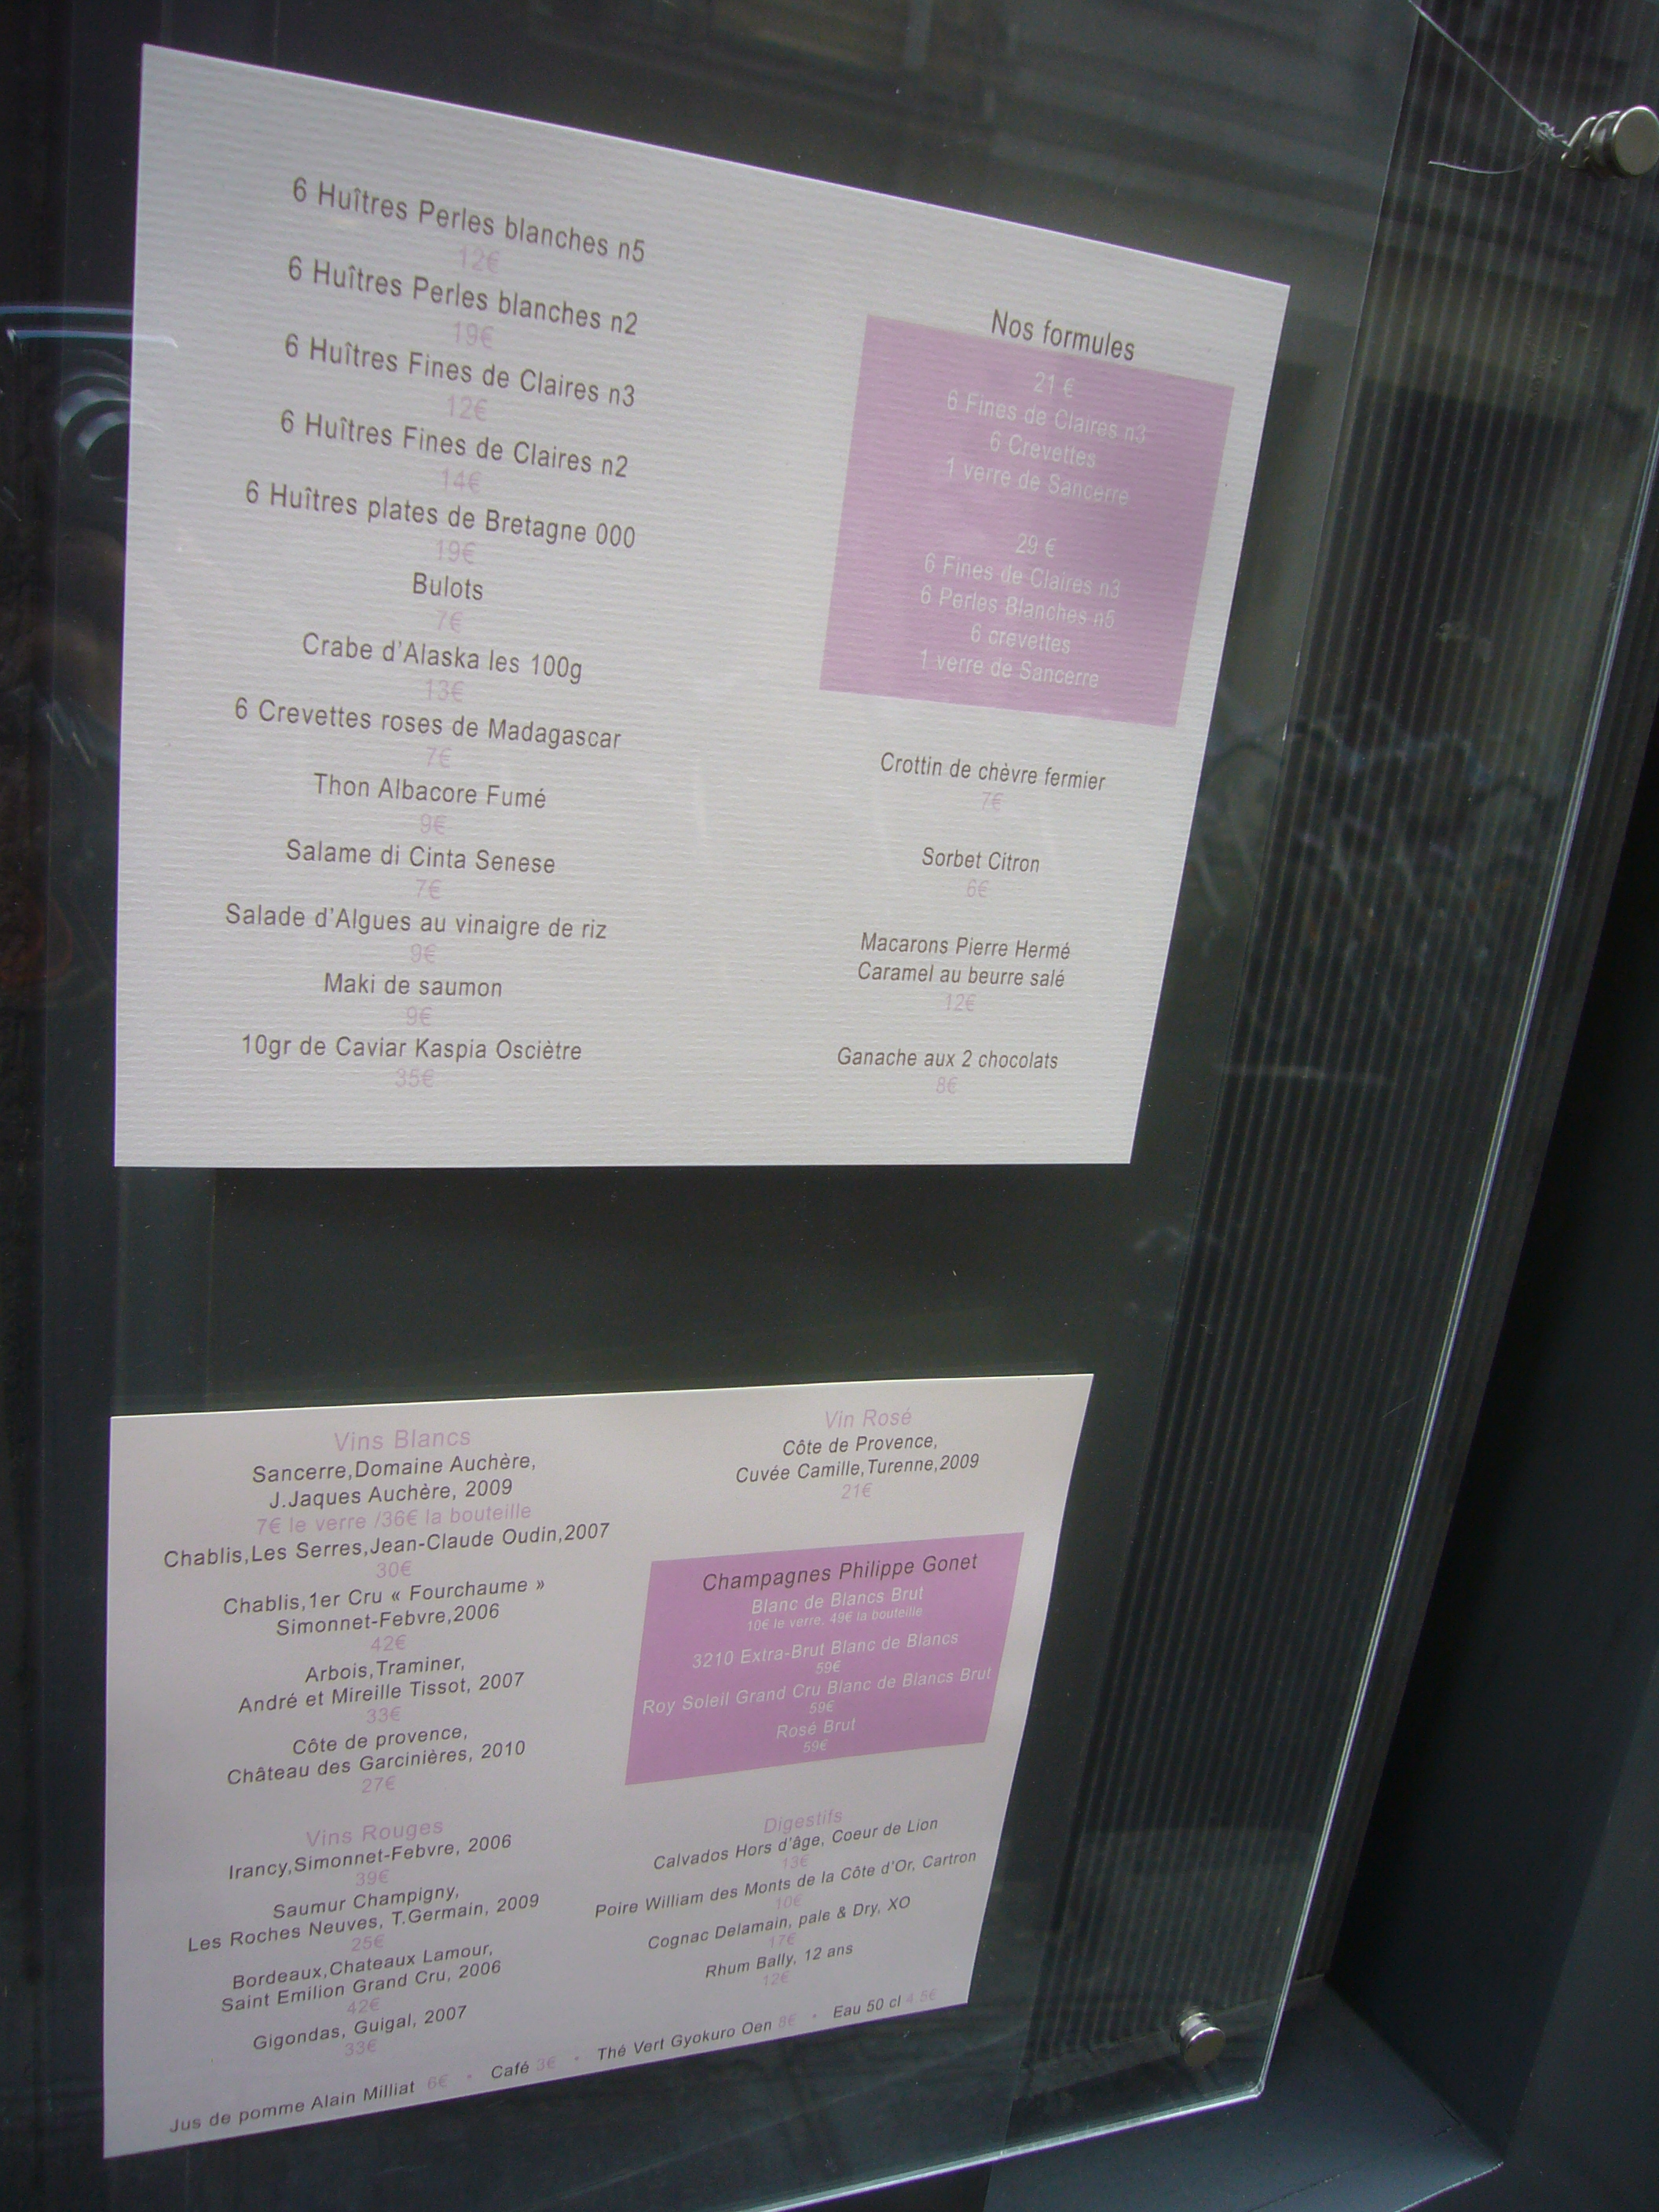 6 Huîtres Perles blanches n5
12€
6 Huîtres Perles blanches n2
19€
6 Huîtres Fines de Claires n3
12€
6 Huîtres Fines de Claires n2
14€
6 Huîtres plates de Bretagne 000
19€
Bulots
7€
Crabe d'Alaska les 100g
13€
6 Crevettes roses de Madagascar
7€
Thon Albacore Fumé
9€
Salame di Cinta Senese
7€
Salade d'Algues au vinaigre de riz
9€
Maki de saumon
9€
10gr de Caviar Kaspia Osciètre
35€
Nos formules
21 €
6 Fines de Claires n3
6 Crevettes
1 verre de Sancerre
29 €
6 Fines de Claires n3
6 Perles Blanches n5
6 crevettes
1 verre de Sancerre
Crottin de chèvre fermier
7€
Sorbet Citron
6€
Macarons Pierre Hermé
Caramel au beurre salé
12€
Ganache aux 2 chocolats
8€
Vins Blancs
Sancerre,Domaine Auchère,
J.Jaques Auchère, 2009
7€ le verre /36€ la bouteille
Chablis,Les Serres,Jean-Claude Oudin,2007
30€
Chablis,1er Cru « Fourchaume »
Simonnet-Febvre,2006
42€
Arbois,Traminer,
André et Mireille Tissot, 2007
33€
Côte de provence,
Château des Garcinières, 2010
27€
Vins Rouges
Irancy,Simonnet-Febvre, 2006
39€
Saumur Champigny,
Les Roches Neuves, T.Germain, 2009
25€
Bordeaux,Chateaux Lamour,
Saint Emilion Grand Cru, 2006
42€
Gigondas, Guigal, 2007
33€
Vin Rosé
Côte de Provence,
Cuvée Camille,Turenne,2009
21€
Champagnes Philippe Gonet
Blanc de Blancs Brut
10€ le verre, 49€ la bouteille
3210 Extra-Brut Blanc de Blancs
59€
Roy Soleil Grand Cru Blanc de Blancs Brut
59€
Rosé Brut
59€
Digestifs
Calvados Hors d'âge, Coeur de Lion
13€
Poire William des Monts de la Côte d'Or, Cartron
10€
Cognac Delamain, pale & Dry, XO
17€
Rhum Bally, 12 ans
12€
Jus de pomme Alain Milliat 6€ • Café 3€ • Thé Vert Gyokuro Oen 8€ • Eau 50 cl 4.5€